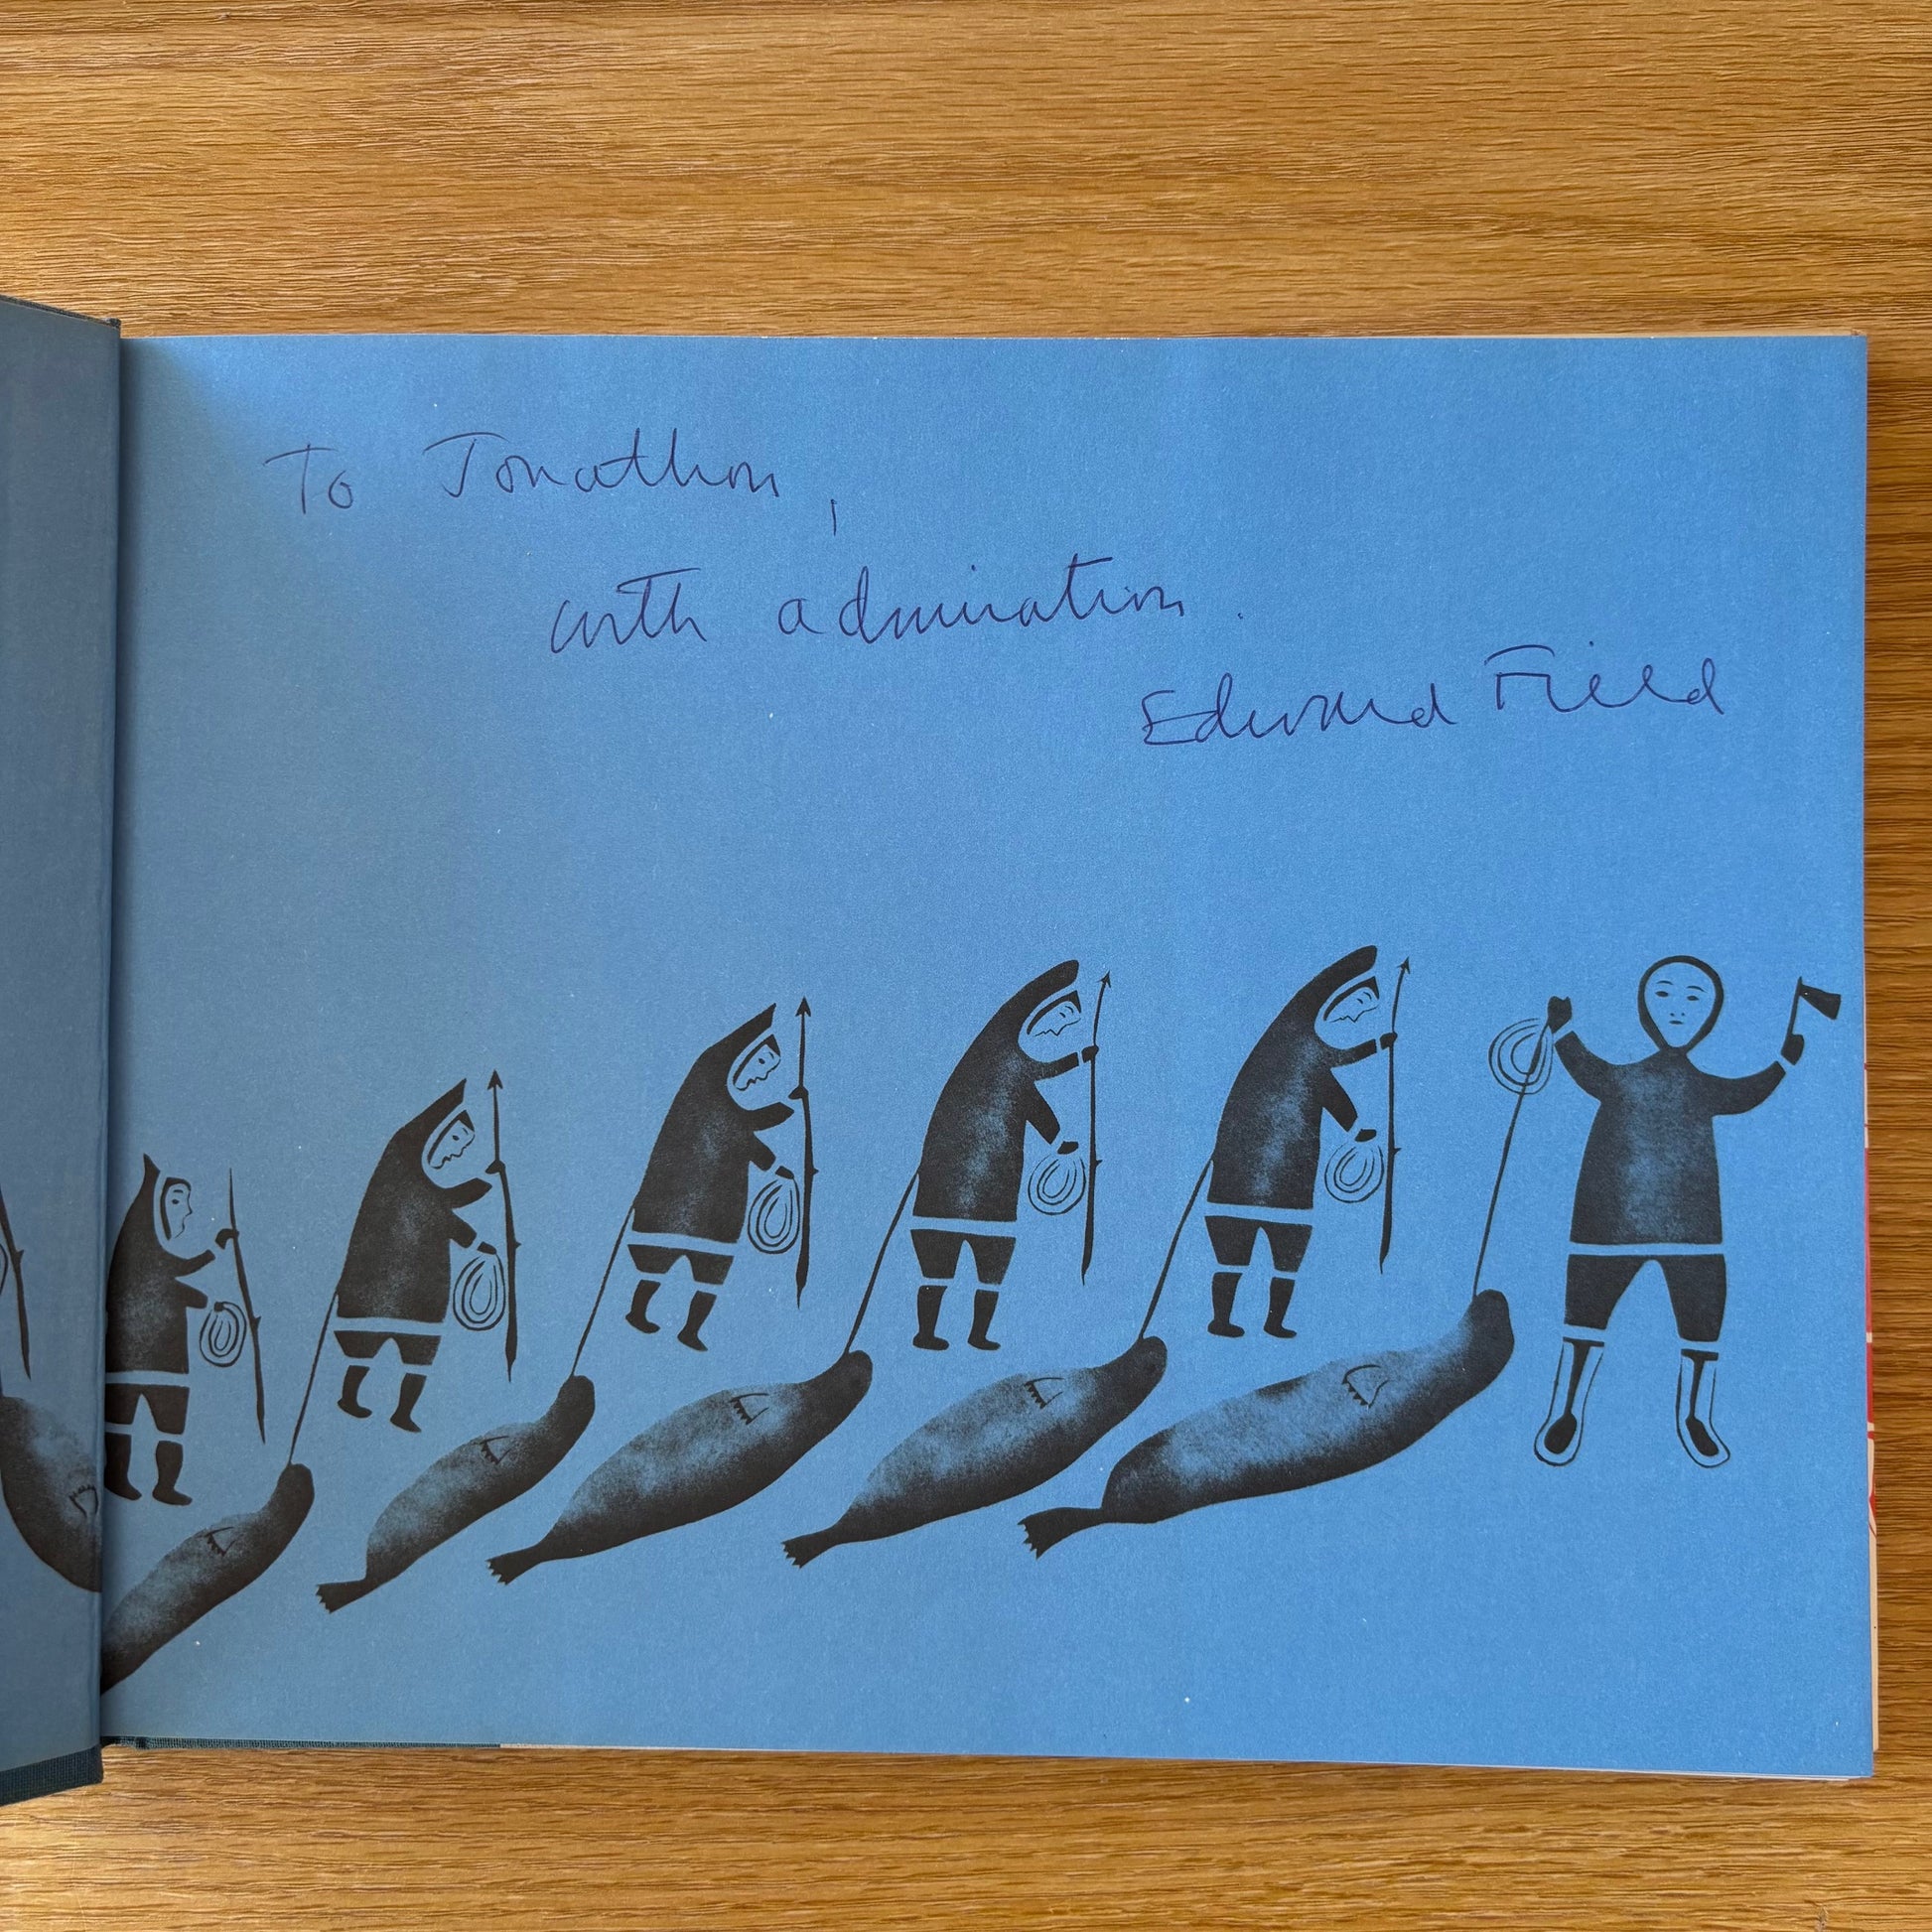 To Jonathon,
with admiration.
Edward Field